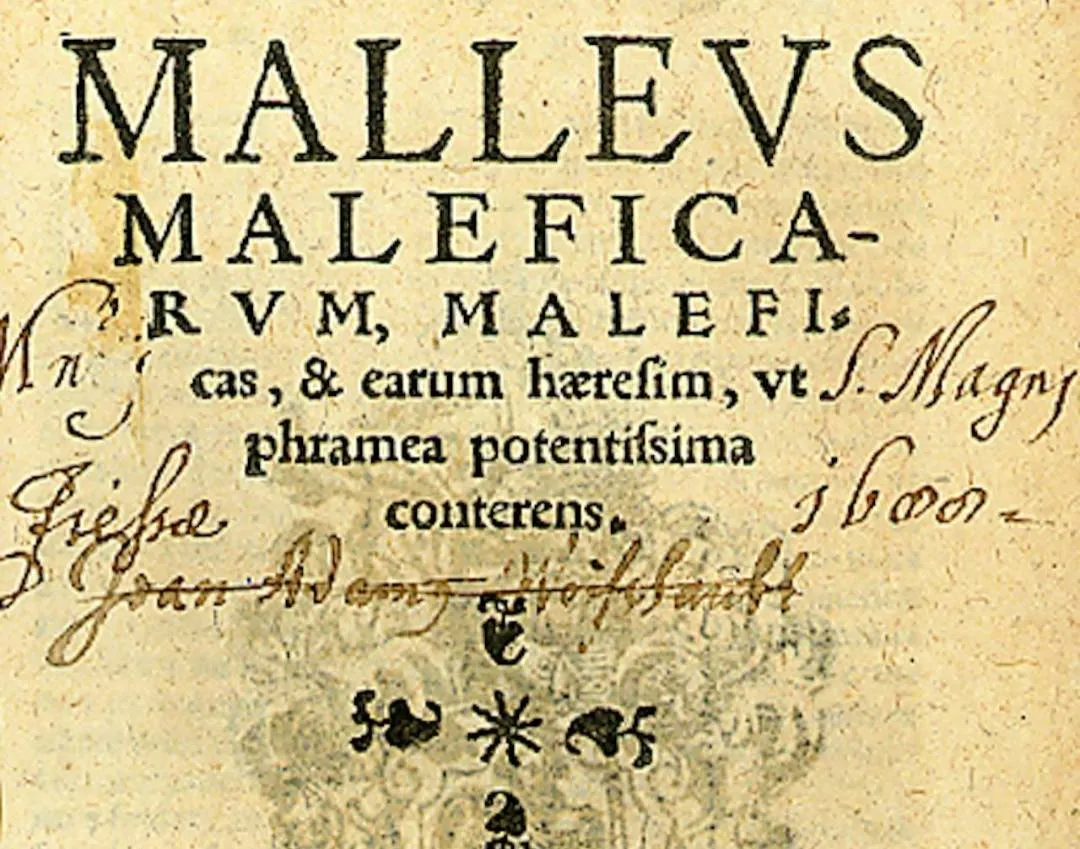 MALLEVS
MALEFICA-
RVM, MALEFI-
cas, & earum hæreſim, vt S. Magnj
phramea potentiſsima
conterens.
1600
Joan Adamg